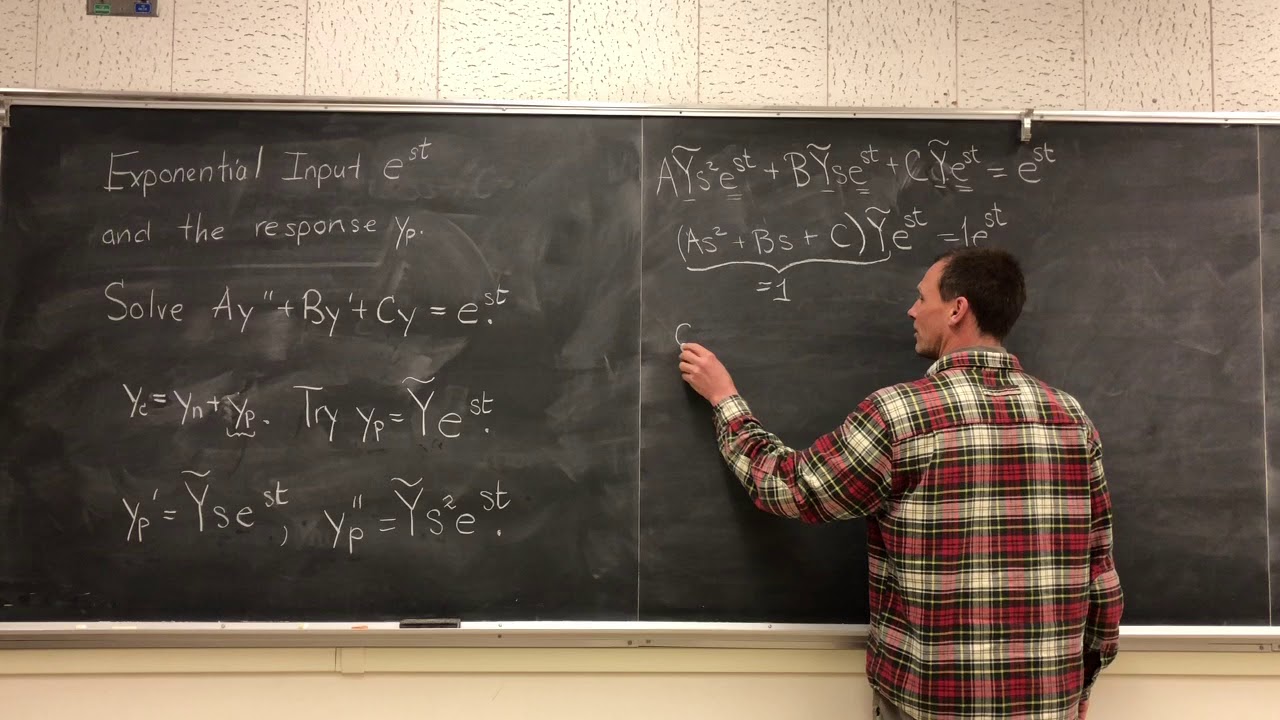 Exponential Input e^st
and the response yp.
Solve Ay" + By' + Cy = e^st.
yc = yn + yp. Try yp = Ỹe^st.
yp' = Ỹse^st, yp" = Ỹs²e^st.
AỸs²e^st + BỸse^st + CỸe^st = e^st
(As² + Bs + C)Ỹe^st = 1e^st
=1
C